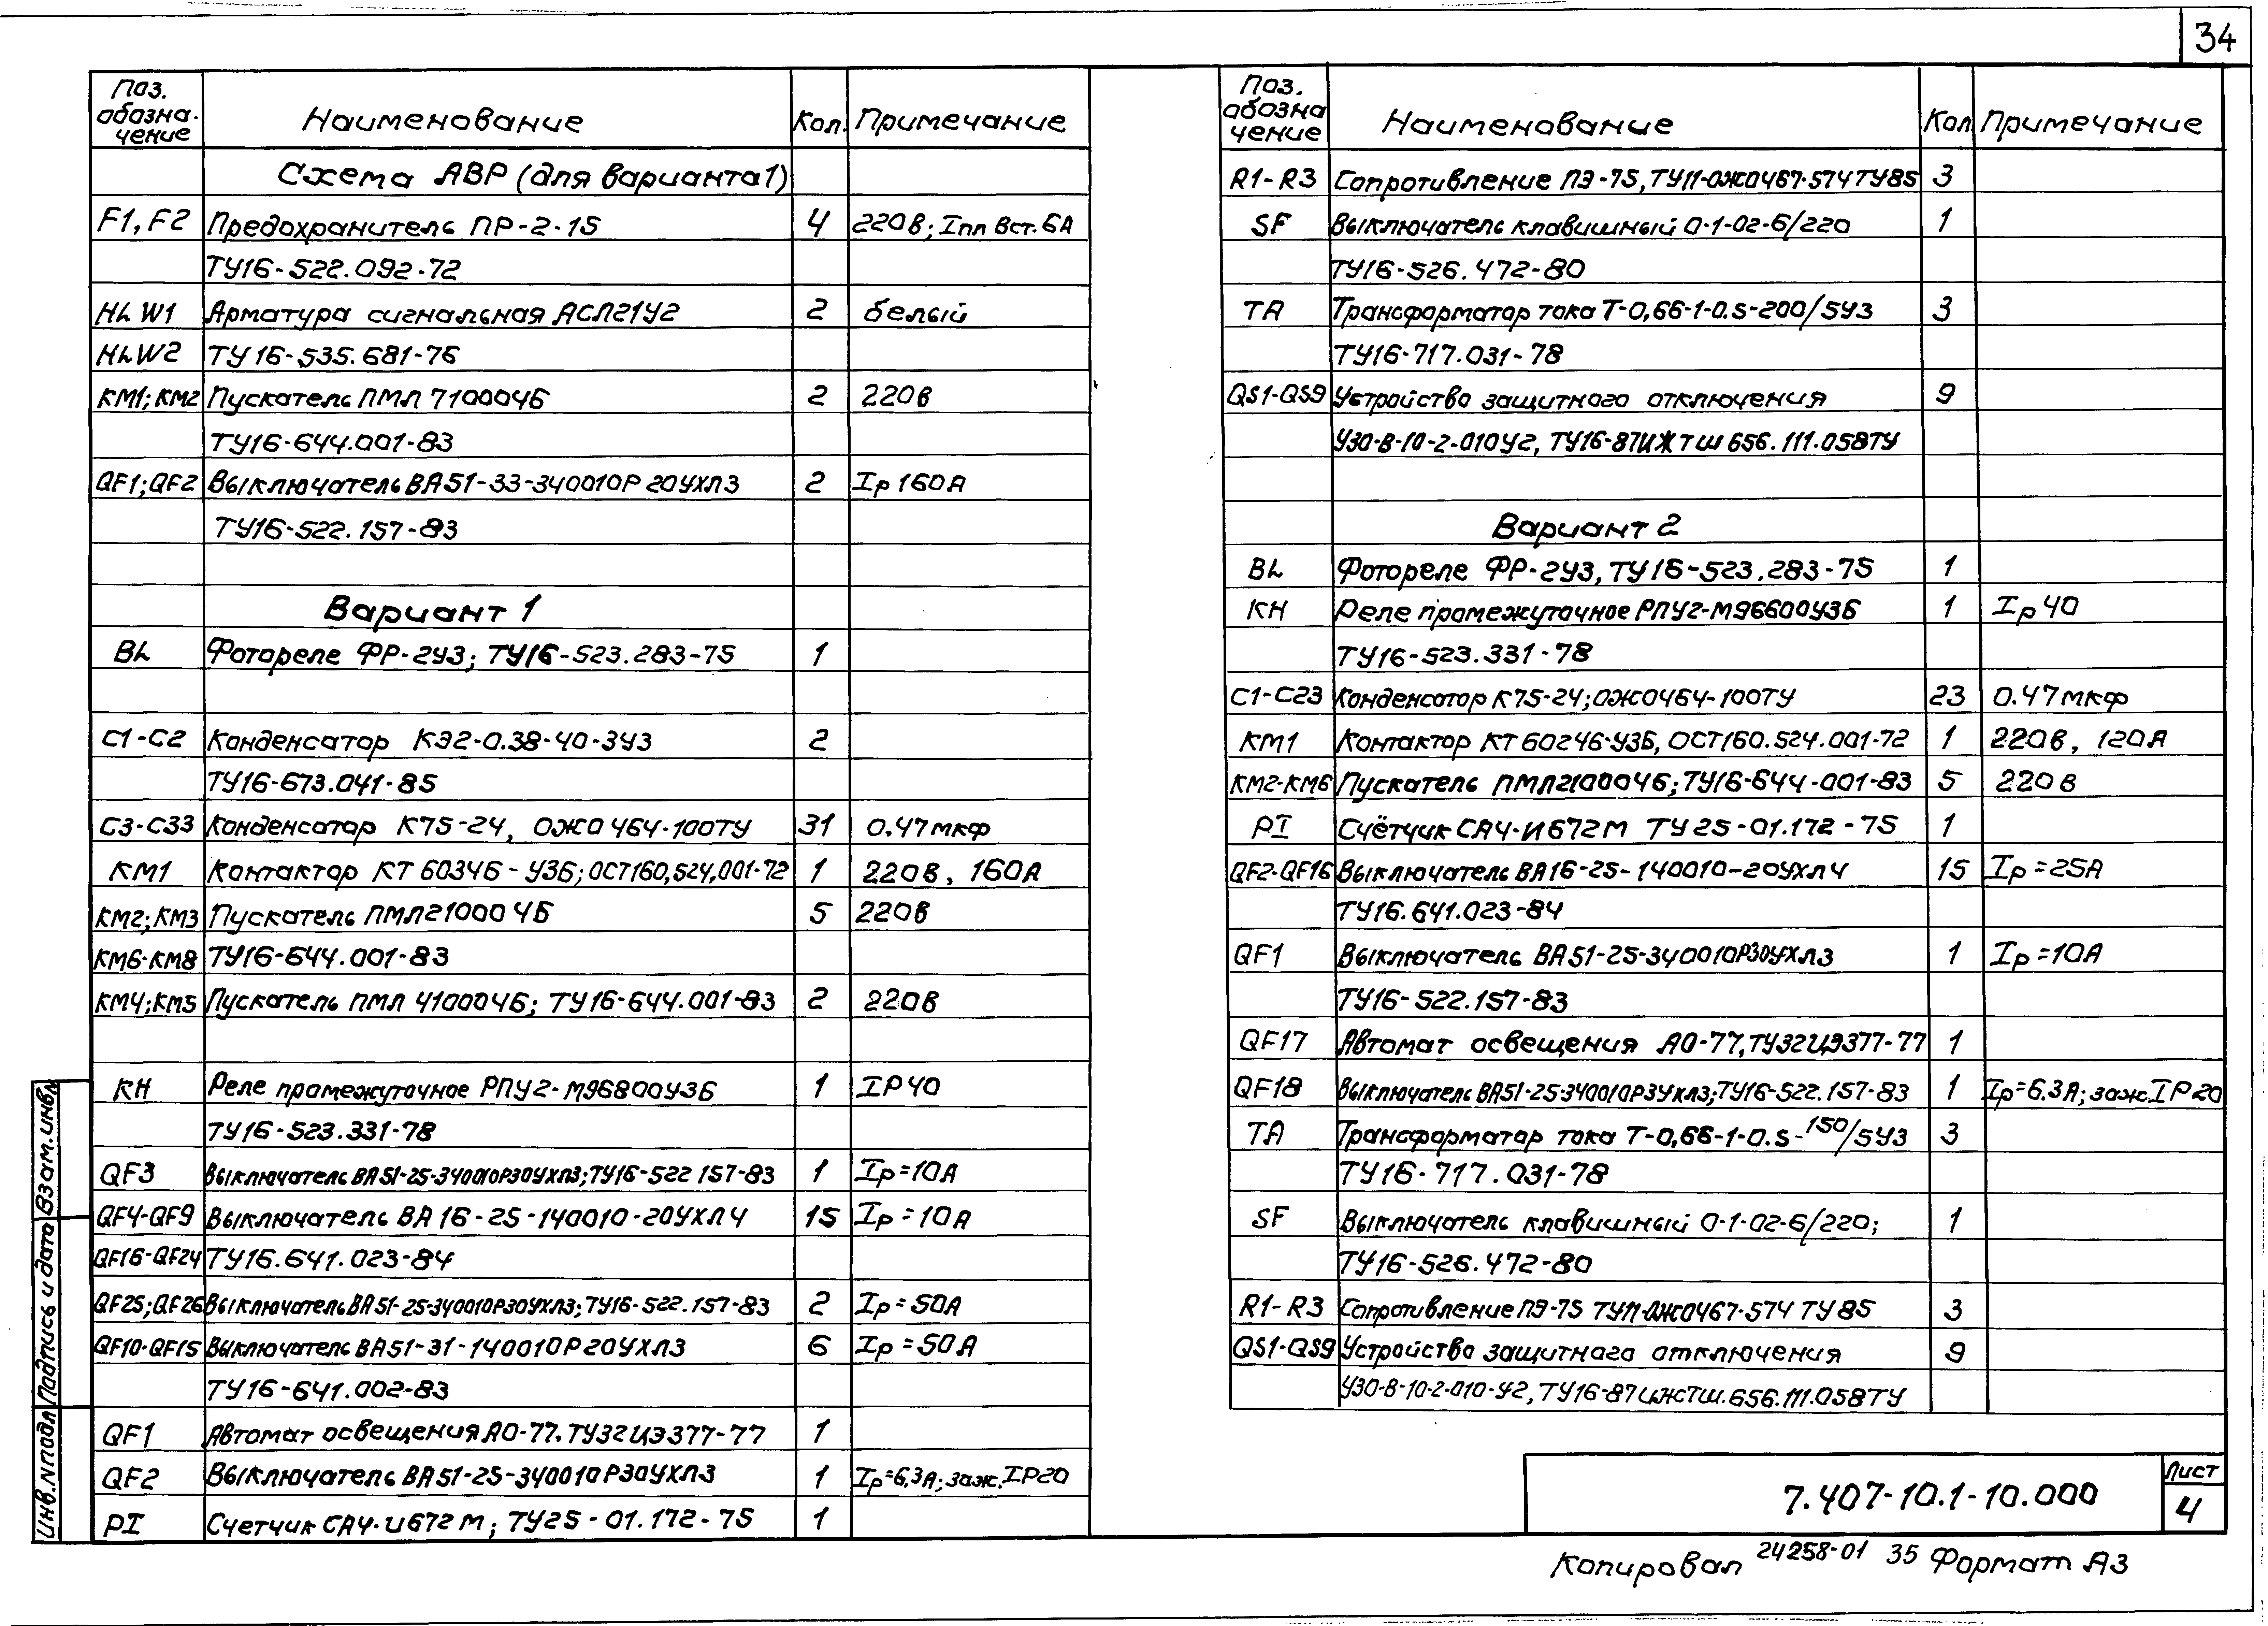 34
Поз. обозна-чение Наименование Кол. Примечание
Схема АВР (для варианта 1)
F1, F2 Предохранитель ПР-2-15 4 220В; Iпл вст. 6А
ТУ16-522.092-72
HLW1 Арматура сигнальная АСЛ21У2 2 белый
HLW2 ТУ16-535.681-76
КМ1; КМ2 Пускатель ПМЛ 710004Б 2 220В
ТУ16-644.001-83
QF1; QF2 Выключатель ВА51-33-340010Р20УХЛ3 2 Iр 160А
ТУ16-522.157-83
Вариант 1
BL Фотореле ФР-2У3; ТУ16-523.283-75 1
С1-С2 Конденсатор КЭ2-0.38-40-3У3 2
ТУ16-673.041-85
С3-С33 Конденсатор К75-24, ОЖ0464-100ТУ 31 0.47мкф
КМ1 Контактор КТ 6034Б-У3Б; ОСТ160,524,001-72 1 220В, 160А
КМ2; КМ3 Пускатель ПМЛ21000 4Б 5 220В
КМ6-КМ8 ТУ16-644.001-83
КМ4; КМ5 Пускатель ПМЛ 410004Б; ТУ16-644.001-83 2 220В
КН Реле промежуточное РПУ2-М96800У3Б 1 IP40
ТУ16-523.331-78
QF3 Выключатель ВА51-25-340010Р30УХЛ3; ТУ16-522 157-83 1 Iр=10А
QF4-QF9 Выключатель ВА16-25-140010-20УХЛ4 15 Iр=10А
QF16-QF24 ТУ16.641.023-84
QF25; QF26 Выключатель ВА51-25-340010Р30УХЛ3; ТУ16-522.157-83 2 Iр=50А
QF10-QF15 Выключатель ВА51-31-140010Р20УХЛ3 6 Iр=50А
ТУ16-641.002-83
QF1 Автомат освещения АО-77. ТУ32ЦЭ377-77 1
QF2 Выключатель ВА51-25-340010Р30УХЛ3 1 Iр=6.3А; заж. IP20
PI Счетчик СА4-И672М; ТУ25-01.172-75 1
Поз. обозна чение Наименование Кол Примечание
R1-R3 Сопротивление ПЭ-75, ТУ11-ОЖ0467-574ТУ85 3
SF Выключатель клавишный 0-1-02-6/220 1
ТУ16-526.472-80
ТА Трансформатор тока Т-0,66-1-0.5-200/5У3 3
ТУ16-717.031-78
QS1-QS9 Устройство защитного отключения 9
УЗО-В-10-2-010У2, ТУ16-87ИЖТШ656.111.058ТУ
Вариант 2
BL Фотореле ФР-2У3, ТУ16-523.283-75 1
КН Реле промежуточное РПУ2-М96600У3Б 1 Iр 40
ТУ16-523.331-78
С1-С23 Конденсатор К75-24; ОЖ0464-100ТУ 23 0.47мкф
КМ1 Контактор КТ6024Б-У3Б, ОСТ160.524.001-72 1 220В, 120А
КМ2-КМ6 Пускатель ПМЛ210004Б; ТУ16-644-001-83 5 220В
PI Счётчик СА4-И672М ТУ25-01.172-75 1
QF2-QF16 Выключатель ВА16-25-140010-20УХЛ4 15 Iр=25А
ТУ16.641.023-84
QF1 Выключатель ВА51-25-340010Р30УХЛ3 1 Iр=10А
ТУ16-522.157-83
QF17 Автомат освещения АО-77, ТУ32ЦЭ377-77 1
QF18 Выключатель ВА51-25-340010Р3УХЛ3; ТУ16-522.157-83 1 Iр=6.3А; заж. IP20
ТА Трансформатор тока Т-0,66-1-0.5-150/5У3 3
ТУ16-717.031-78
SF Выключатель клавишный 0-1-02-6/220; 1
ТУ16-526.472-80
R1-R3 Сопротивление ПЭ-75 ТУ11-ОЖ0467-574 ТУ85 3
QS1-QS9 Устройство защитного отключения 9
УЗО-В-10-2-010-У2, ТУ16-87ИЖТШ.656.111.058ТУ
Инв.№подл Подпись и дата Взам.инв№
7.407-10.1-10.000
Лист
4
Копировал 24258-01 35 Формат А3